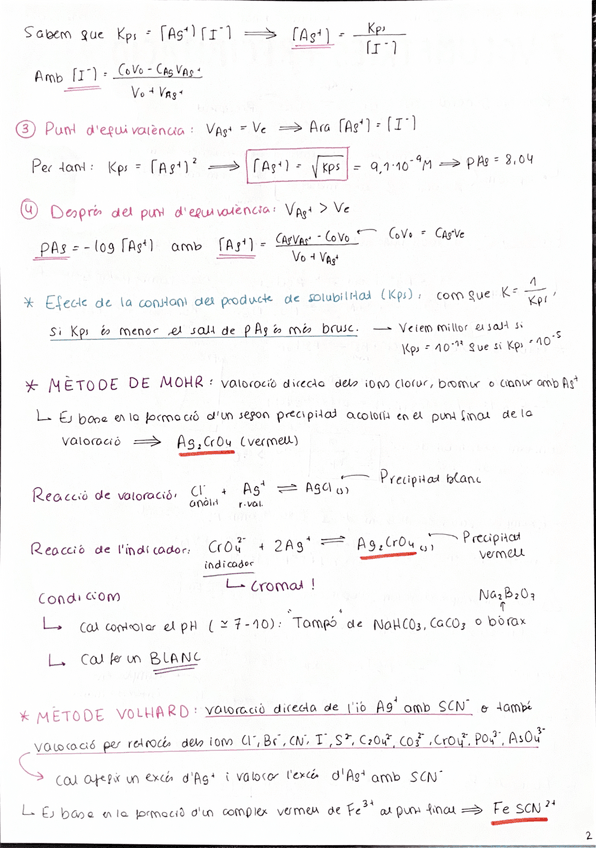 Sabem que Kps = [Ag⁺][I⁻] ⟹ [Ag⁺] = Kps / [I⁻]
Amb [I⁻] = CoVo - CAgVAg⁺ / Vo + VAg⁺
③ Punt d'equivalència: VAg⁺ = Ve ⟹ Ara [Ag⁺] = [I⁻]
Per tant: Kps = [Ag⁺]² ⟹ [Ag⁺] = √Kps = 9,1·10⁻⁹M ⟹ pAg = 8,04
④ Després del punt d'equivalència: VAg⁺ > Ve
pAg = -log [Ag⁺] amb [Ag⁺] = CAgVAg⁺ - CoVo / Vo + VAg⁺ ← CoVo = CAg·Ve
* Efecte de la constant del producte de solubilitat (Kps): com que K = 1 / Kps,
si Kps és menor el salt de pAg és més brusc. → Veiem millor el salt si
Kps = 10⁻¹² que si Kps = 10⁻⁵
* MÈTODE DE MOHR: valoració directa dels ions clorur, bromur o cianur amb Ag⁺
↳ Es basa en la formació d'un segon precipitat acolorit en el punt final de la
valoració ⟹ Ag₂CrO₄ (vermell)
Reacció de valoració: Cl⁻ + Ag⁺ ⇌ AgCl(s) ← Precipitat blanc
anàlit r.val.
Reacció de l'indicador: CrO₄²⁻ + 2Ag⁺ ⇌ Ag₂CrO₄(s) ← Precipitat
vermell
indicador
↳ Cromat!
Condicions
Na₂B₂O₇
↳ Cal controlar el pH (≃ 7-10): "Tampó" de NaHCO₃, CaCO₃ o bòrax
↳ Cal fer un BLANC
* MÈTODE VOLHARD: valoració directa de l'ió Ag⁺ amb SCN⁻ o també
valoració per retrocés dels ions Cl⁻, Br⁻, CN⁻, I⁻, S²⁻, C₂O₄²⁻, CO₃²⁻, CrO₄²⁻, PO₄³⁻, AsO₄³⁻
→ Cal afegir un excés d'Ag⁺ i valorar l'excés d'Ag⁺ amb SCN⁻
↳ Es basa en la formació d'un complex vermell de Fe³⁺ al punt final ⟹ FeSCN²⁺
2